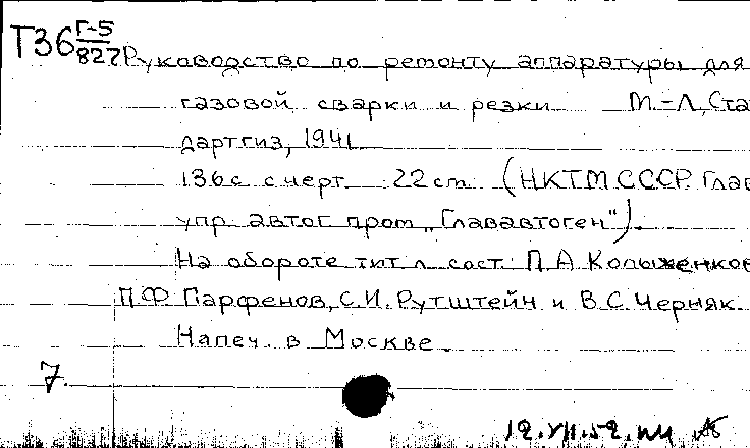 Т36 Г-5
827 Руководство по ремонту аппаратуры для
газовой сварки и резки М.-Л, Ста
дартгиз, 1941
136с. с черт. 22 см. (НКТМ СССР. Глав
упр. автог. пром „Глававтоген").
На обороте тит л сост: П. А Колыженков
П. Ф Парфенов, С. И. Рутштейн и В. С. Черняк.
Напеч. в Москве.
7.
12.VII.52.